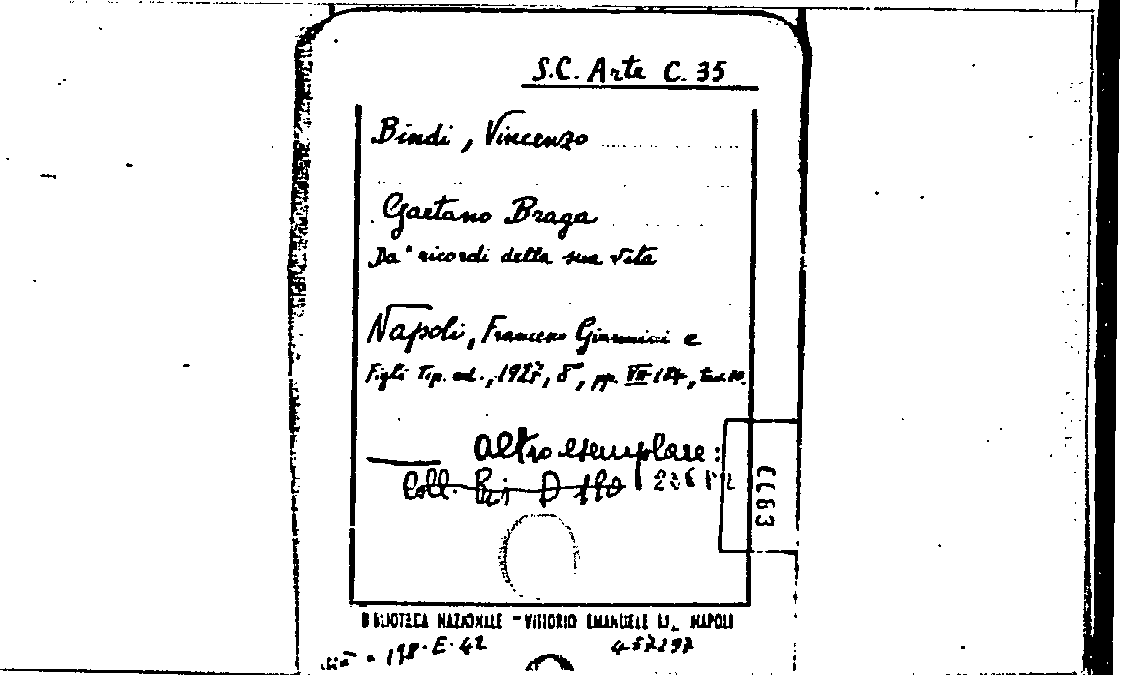 S.C. Arte C. 35
Bindi, Vincenzo
Gaetano Braga
Da' ricordi della sua vita
Napoli, Francesco Giannini e
Figli Tip. ed., 1927, 8°, pp. VII
Altro esemplare:
Coll.
BIBLIOTECA NAZIONALE - VITTORIO EMANUELE III, NAPOLI
198. E. 42